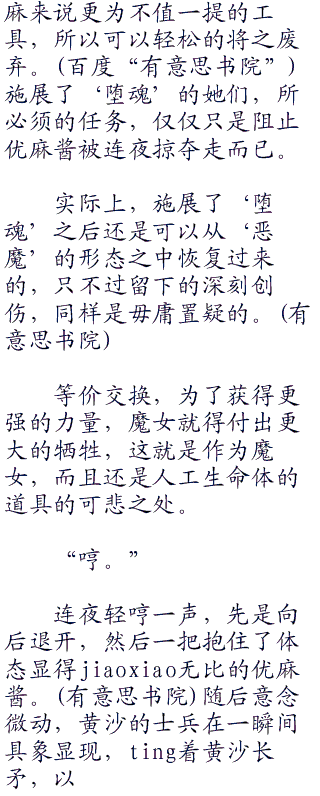 麻来说更为不值一提的工
具，所以可以轻松的将之废
弃。(百度“有意思书院”)
施展了‘堕魂’的她们，所
必须的任务，仅仅只是阻止
优麻酱被连夜掠夺走而已。
实际上，施展了‘堕
魂’之后还是可以从‘恶
魔’的形态之中恢复过来
的，只不过留下的深刻创
伤，同样是毋庸置疑的。(有
意思书院)
等价交换，为了获得更
强的力量，魔女就得付出更
大的牺牲，这就是作为魔
女，而且还是人工生命体的
道具的可悲之处。
“哼。”
连夜轻哼一声，先是向
后退开，然后一把抱住了体
态显得jiaoxiao无比的优麻
酱。(有意思书院)随后意念
微动，黄沙的士兵在一瞬间
具象显现，ting着黄沙长
矛，以